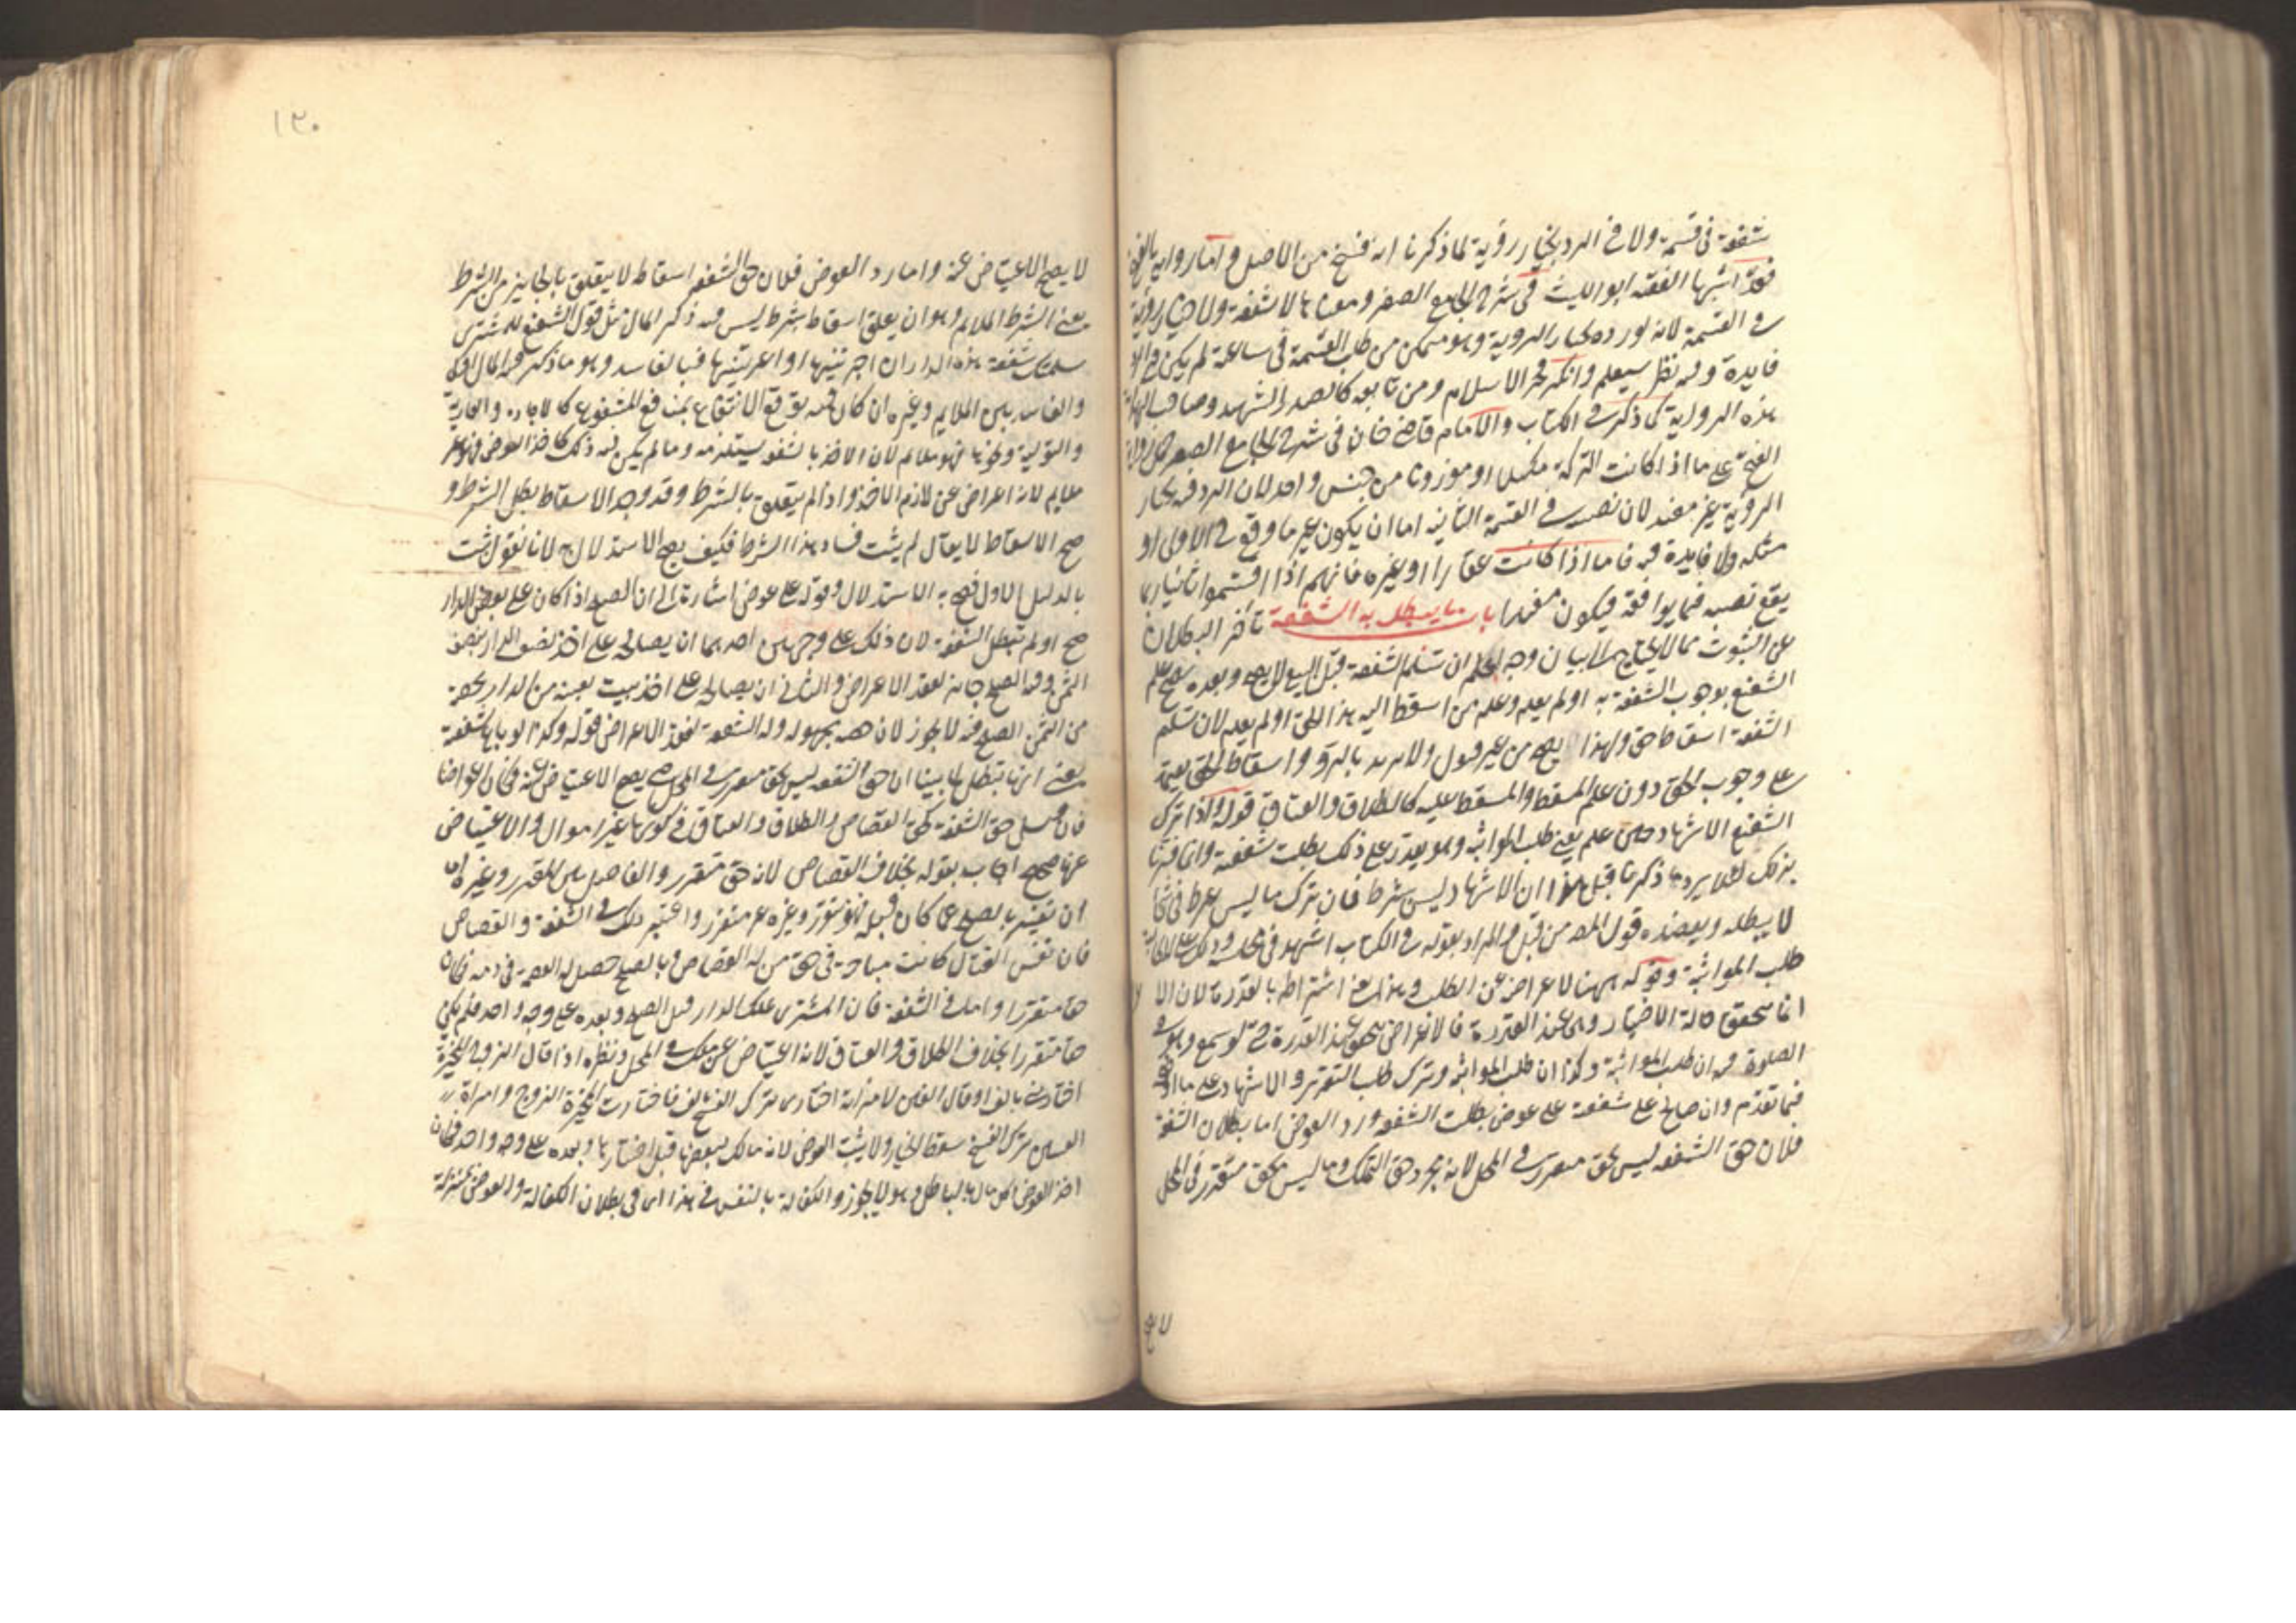 شفعة في قسمة ولا في الرد بخيار رؤية لما ذكرنا انه فسخ من الاصل واما رواية بالفتح
فقد اثبتها الفقيه ابو الليث في شرح الجامع الصغير ومعناها لا شفعة ولا خيار رؤية
في القسمة لانه لو رده بخيار الروية وهو متمكن من طلب القسمة في ساعته لم يكن في الرد
فايدة وفيه نظر سيعلم وانكر فخر الاسلام ومن تابعه كالصدر الشهيد وصاحب الهداية
هذه الرواية كما ذكر في الكتاب والامام قاضي خان في شرح الجامع الصغير حمل رواية
الفتح على ما اذا كانت التركة مكيلا او موزونا من جنس واحد لان الرد فيه بخيار
الرؤية غير مفيد لان نصيبه في القسمة الثانية اما ان يكون عين ما وقع في الاولى او
مثله ولا فايدة فيه فاما اذا كانت عقارا او غيره فانهم اذا اقتسموا ثانيا ربما
يقع نصيبه فيما يوافقه فيكون مفيدا باب ما يبطل به الشفعة تأخر البطلان
عن الثبوت مما لا يحتاج الى بيان وجه اعلم ان تسليم الشفعة قبل البيع لا يصح وبعده يصح علم
الشفيع بوجوب الشفعة به او لم يعلم وعلم من اسقط اليه هذا الحق او لم يعلم لان تسليم
الشفعة اسقاط حق ولهذا يصح من غير قبول ولا يرتد بالرد واسقاط الحق يعتمد
على وجوب الحق دون علم المسقط والمسقط عليه كالطلاق والعتاق قوله واذا ترك
الشفيع الاشهاد حين علم يعني طلب المواثبة وهو يقدر على ذلك بطلت شفعته وانما فسرنا
بذلك لئلا يرد ما ذكرنا قبل هذا ان الاشهاد ليس بشرط فان ترك ما ليس بشرط في شئ
لا يبطله ويعضده قول المص من قبل والمراد بقوله في الكتاب اشهد في مجلسه ذلك على المطالبة
طلب المواثبة وقوله ههنا لاعراضه عن الطلب وهذا يعني اشتراطه بالقدرة لان الا
انما يتحقق حالة الاختيار وهي عند القدرة فالاعراض يتحقق عند القدرة حتى لو سمع وهو في
الصلوة فيه ان طلب المواثبة وكذا ان طلب المواثبة وترك طلب التقرير والاشهاد على ما
فيما تقدم وان صالح على شفعة على عوض بطلت الشفعة ورد العوض اما بطلان الشفعة
فلان حق الشفعة ليس بحق متقرر في المحل لانه مجرد حق التملك وما ليس بحق متقرر في المحل
١٣٠
لا يصح الاعتياض عنه واما رد العوض فلان حق الشفعة اسقاط لا يتعلق بالجائز من الشرط
يعني الشرط الملايم وهو ان يعلق اسقاطه بشرط ليس فيه ذكر المال مثل قول الشفيع للمشتري
سلمتك شفعة هذه الدار ان اجرتنيها او اعرتنيها فبالفاسد وهو ما ذكر فيه المال اولى
والفاصل بين الملايم وغيره ان كان فيه توقع الانتفاع بمنافع المشفوع كالاجارة والعارية
والتولية ونحوها فهو ملايم لان الاخذ بالشفعة يستلزمه وما لم يكن فيه ذلك كاخذ العوض فغير
ملايم لانه اعراض عن لازم الاخذ واذا لم يتعلق بالشرط وقد وجد الاسقاط بطل الشرط و
صح الاسقاط لا يقال لم يثبت فساد هذا الشرط فكيف يصح الاستدلال به لانا نقول ثبت
بالدليل الاول فصح به الاستدلال وقوله على عوض اشارة الى ان الصلح اذا كان على بعض الدار
صح ولم تبطل الشفعة لان ذلك على وجهين احدهما ان يصالح على اخذ نصف الدار بنصف
الثمن وفيه الصلح جايز لفقد الاعراض والثاني ان يصالح على اخذ بيت بعينه من الدار بحصته
من الثمن الصلح فيه لا يجوز لان حصته مجهولة وله الشفعة لفقد الاعراض قوله وكذا لو باع شفعته
يعني انها تبطل لما بينا ان حق الشفعة ليس بحق متقرر في المحل حتى يصح الاعتياض عنه فكان اعراضا
فان قيل حق الشفعة كحق القصاص والطلاق والعتاق في كونها غير اموال والاعتياض
عنها صحيح اجاب بقوله بخلاف القصاص لانه حق متقرر والفاصل بين المتقرر وغيره ان
ان تغير بالصلح عما كان قبله فهو متقرر وغيره غير متقرر واعتبر ذلك في الشفعة والقصاص
فان نفس القاتل كانت مباحة في حق من له القصاص وبالصلح حصل له العصمة في دمه فكان
حقا متقررا واما في الشفعة فان المشتري يملك الدار قبل الصلح وبعده على وجه واحد فلم يكن
حقا متقررا بخلاف الطلاق والعتاق لانه اعتياض عن ملك في المحل ونظيره اذا قال الزوج للمخيرة
اختاريني بالف او قال العنين لامرأته اختاري ترك الفسخ بالف فاختارت المخيرة الزوج وامراة
العنين ترك الفسخ سقط الخيار ولا يثبت العوض لانه مالك لبعضها قبل اختيارها وبعده على وجه واحد فكان
اخذ العوض اكل مال بالباطل وهو لا يجوز والكفالة بالنفس في هذا اي في بطلان الكفالة والعوض بمنزلة